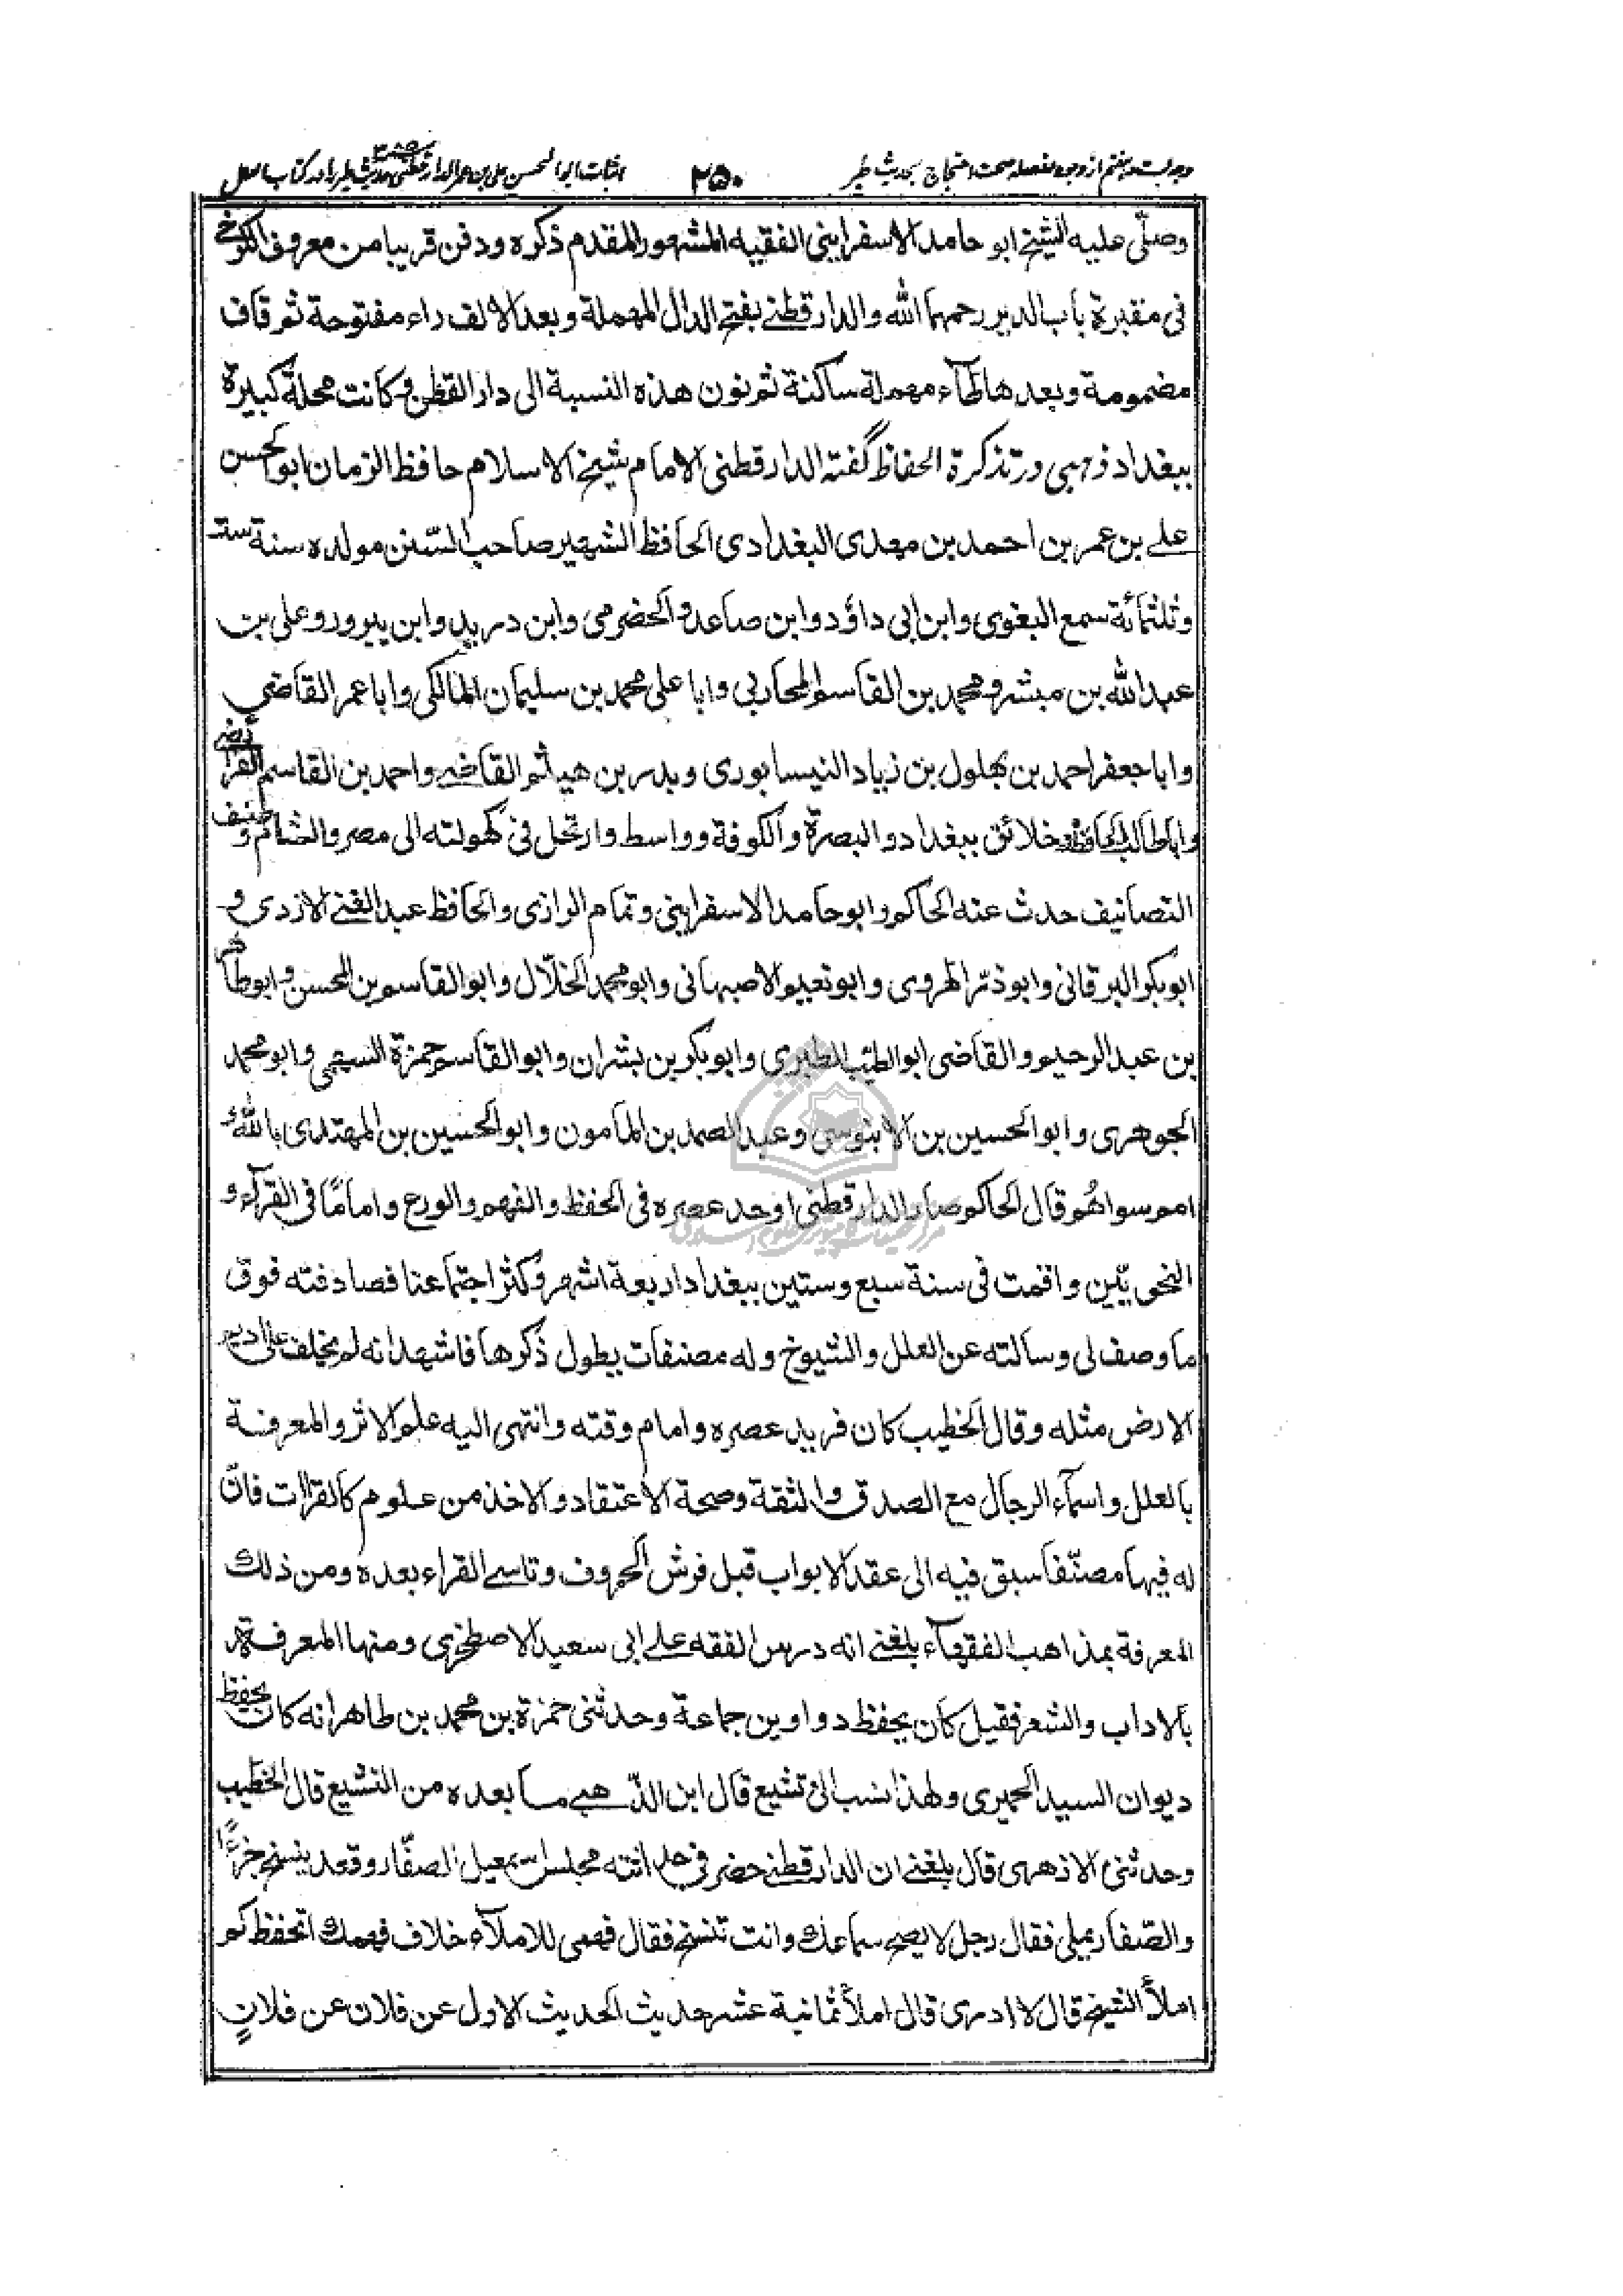 وجه بست و هفتم از وجوه مفصله صحت احتجاج بحدیث طیر ۲۵۰ اثبات ابو الحسن علی بن عمر الدارقطنی حدیث طیر را در کتاب العلل
وصلّى عليه الشيخ ابو حامد الاسفرايينى الفقيه المشهور المقدم ذكره ودفن قريبا من معروف الكرخي
فى مقبرة باب الدير رحمهما الله والدارقطنے بفتح الدال المهملة وبعد الالف راء مفتوحة ثم قاف
مضمومة وبعدها طاء مهملة ساكنة ثم نون هذه النسبة الى دار القطن وكانت محلة كبيرة
ببغداد ذهبى در تذكرة الحفاظ گفته الدارقطنى الامام شيخ الاسلام حافظ الزمان ابو الحسن
علے بن عمر بن احمد بن مهدى البغدادى الحافظ الشهير صاحب السّنن مولده سنة ست
وثلثمائة سمع البغوى وابن ابى داؤد وابن صاعد والحضرمى وابن دريد وابن نيروز وعلى بن
عبد الله بن مبشر ومحمد بن القاسم المحاربى وابا على محمد بن سليمان المالكى وابا عمر القاضى
وابا جعفر احمد بن بهلول بن زياد النيسابورى وبدر بن هيثم القاضے واحمد بن القاسم الفرائضى
وابا طالب الحافظ وخلائق ببغداد والبصرة والكوفة وواسط وارتحل فى كهولته الى مصر والشام وصنف
التصانيف حدث عنه الحاكم وابو حامد الاسفرايينى وتمام الرازى والحافظ عبد الغنے الازدى و
ابو بكر البرقانى وابو ذرّ الهروى وابو نعيم الاصبهانى وابو محمد الخلّال وابو القاسم بن المحسن وابو طاهر
بن عبد الرحيم والقاضى ابو الطيّب الطبرى وابو بكر بن بشران وابو القاسم حمزة السهمى وابو محمد
الجوهرى وابو الحسين بن الابنوسى وعبد الصمد بن المامون وابو الحسين بن المهتدى بالله و
امم سواهُم قال الحاكم صار الدارقطنى اوحد عصره فى الحفظ والفهم والورع واماما فى القراء و
النحويّين واقمت فى سنة سبع وستين ببغداد اربعة اشهر وكثر اجتماعنا فصادفته فوق
ما وصف لى وسالته عن العلل والشيوخ وله مصنفات يطول ذكرها فاشهد انه لم يخلف على اديم
الارض مثله وقال الخطيب كان فريد عصره وامام وقته وانتهى اليه علم الاثر والمعرفة
بالعلل واسمآء الرجال مع الصدق والثقة وصحة الاعتقاد والاخذ من علوم كالقراات فانّ
له فيها مصنّفا سبق فيه الى عقد الابواب قبل فرش الحروف وتاسے القراء بعده ومن ذلك
المعرفة بمذاهب الفقهآء بلغنے انه درس الفقه علے ابى سعيد الاصطخرى ومنها المعرفة
بالاداب والشعر فقيل كان يحفظ دواوين جماعة وحدثنى حمزة بن محمد بن طاهر انه كان يحفظ
ديوان السيد الحميرى ولهذا نسب الى تشيع قال ابن الذّهبے ما بعده من التشيع قال الخطيب
وحدثنى الازهرى قال بلغنے ان الدارقطنے حضر فى حداثته مجلس اسمعيل الصفّار وقعد ينسخ جزءًا
والصّفار يملى فقال رجل لا يصح سماعك وانت تنسخ فقال فهمى للاملآء خلاف فهمك اتحفظ كم
املأ الشيخ قال لا ادرى قال املأ ثمانية عشر حديث الحديث الاول عن فلان عن فلانٍ